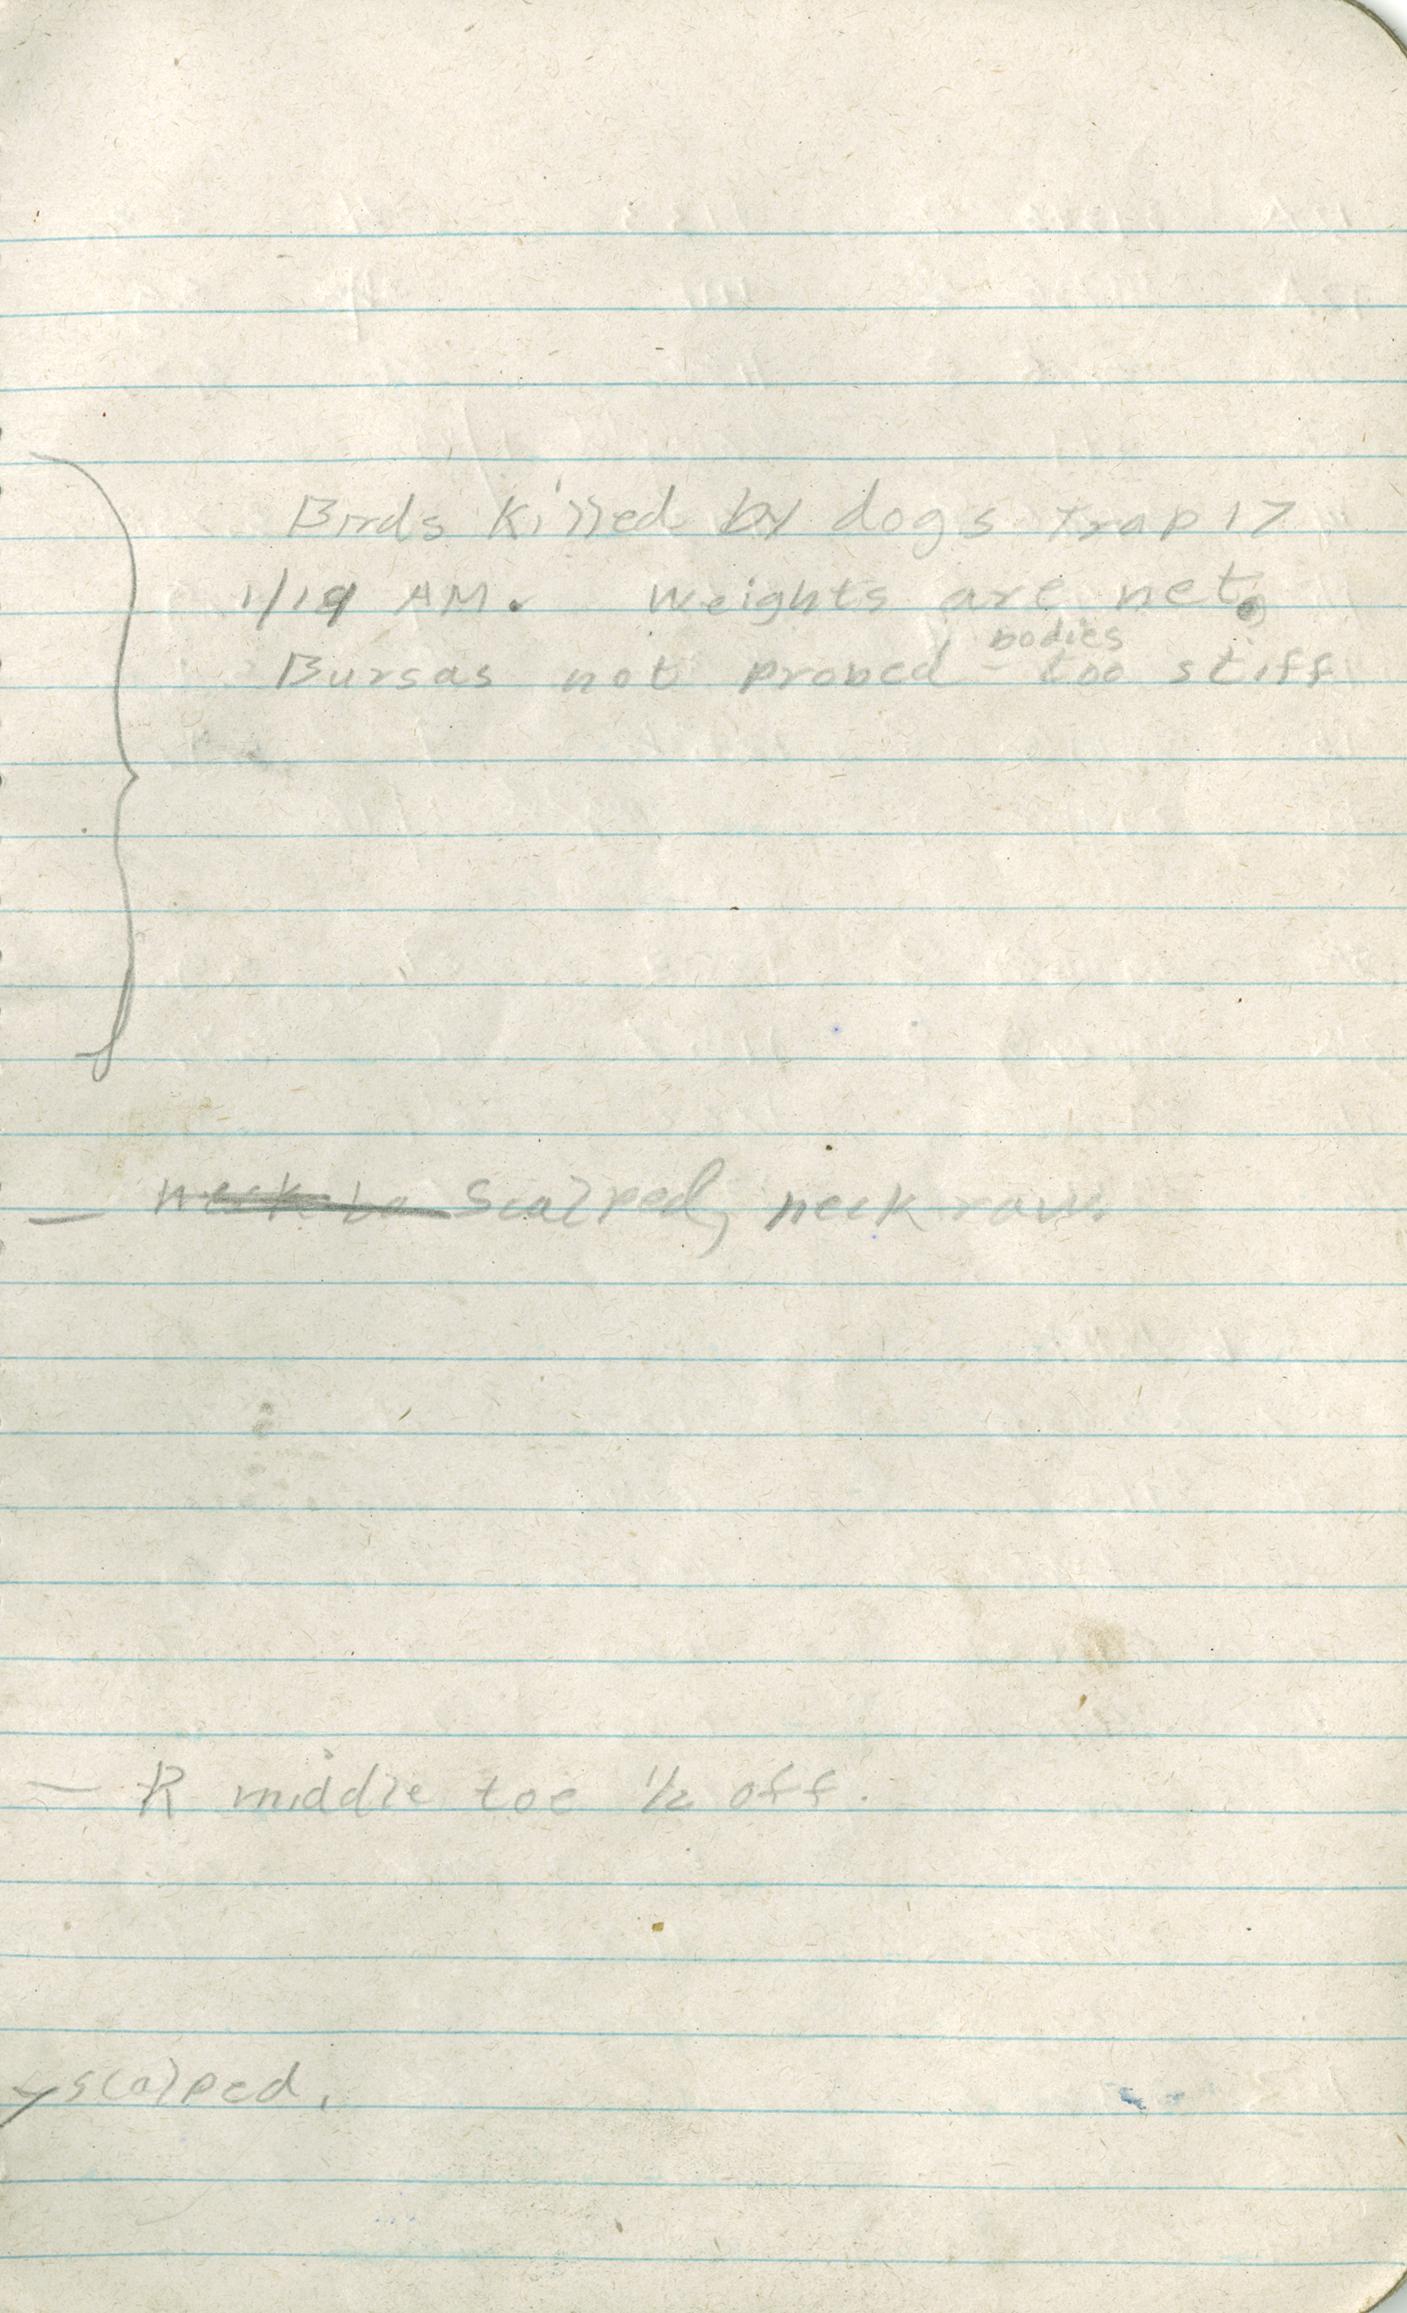 Birds killed by dogs trap 17
1/19 AM. Weights are net.
bodies
Bursas not probed - too stiff
— neck Scalped, neck raw.
— R middle toe 1/2 off.
scalped.